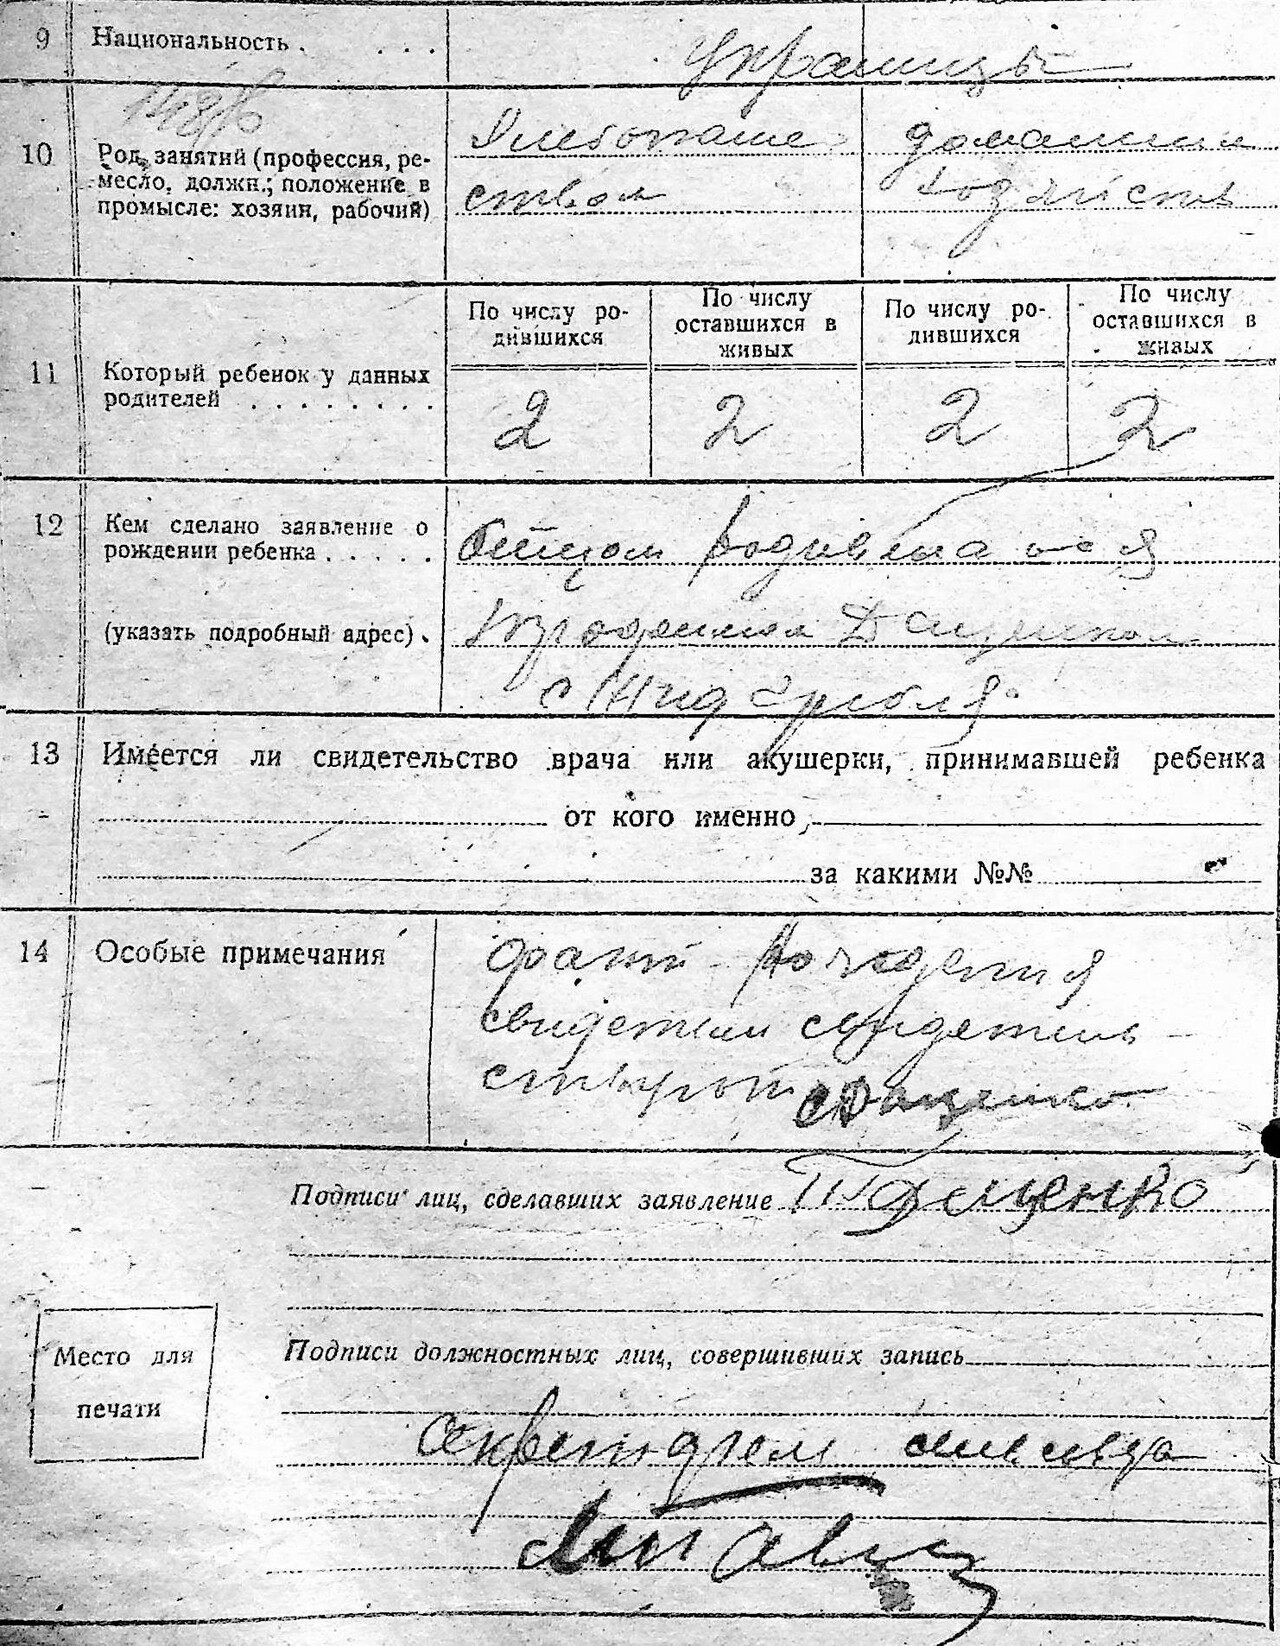 9 Национальность . . . .
украинцы
10 Род занятий (профессия, ре-
месло, должн.; положение в
промысле: хозяин, рабочий)
Хлебопаше-
ством
домашним
хозяйств
11 Который ребенок у данных
родителей . . . . . . . .
По числу ро-
дившихся
По числу
оставшихся в
живых
По числу ро-
дившихся
По числу
оставшихся в
живых
2 2 2 2
12 Кем сделано заявление о
рождении ребенка . . . . .
(указать подробный адрес) .
Отцом
Даценком
с
13 Имеется ли свидетельство врача или акушерки, принимавшей ребенка
от кого именно,
за какими №№
14 Особые примечания
факт рождения
свидетели свидетель-
ствуют Даценко
Подписи лиц, сделавших заявление
Подписи должностных лиц, совершивших запись
Место для
печати
Секретарем